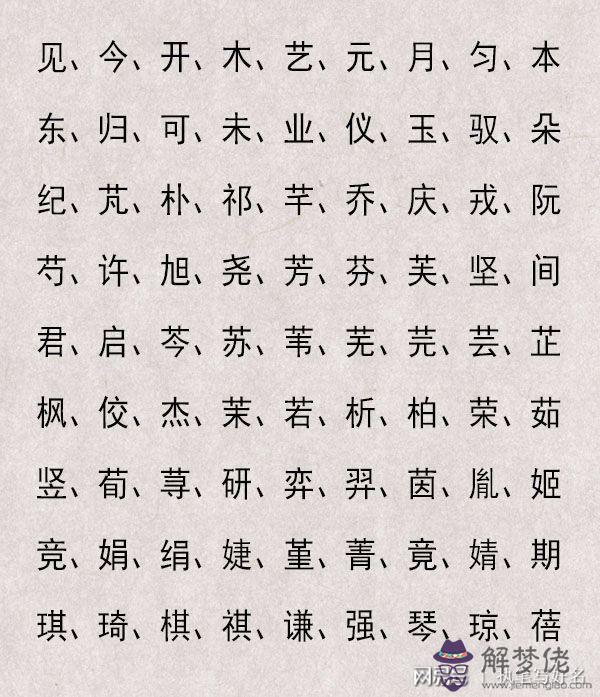 见、今、开、木、艺、元、月、匀、本
东、归、可、未、业、仪、玉、驭、朵
纪、芃、朴、祁、芊、乔、庆、戎、阮
芍、许、旭、尧、芳、芬、芙、坚、间
君、启、芩、苏、苇、芜、芫、芸、芷
枫、佼、杰、茉、若、析、柏、荣、茹
竖、荀、荨、研、弈、羿、茵、胤、姬
竞、娟、绢、婕、堇、菁、竟、婧、期
琪、琦、棋、祺、谦、强、琴、琼、蓓
解梦佬
www.jiemenglao.com